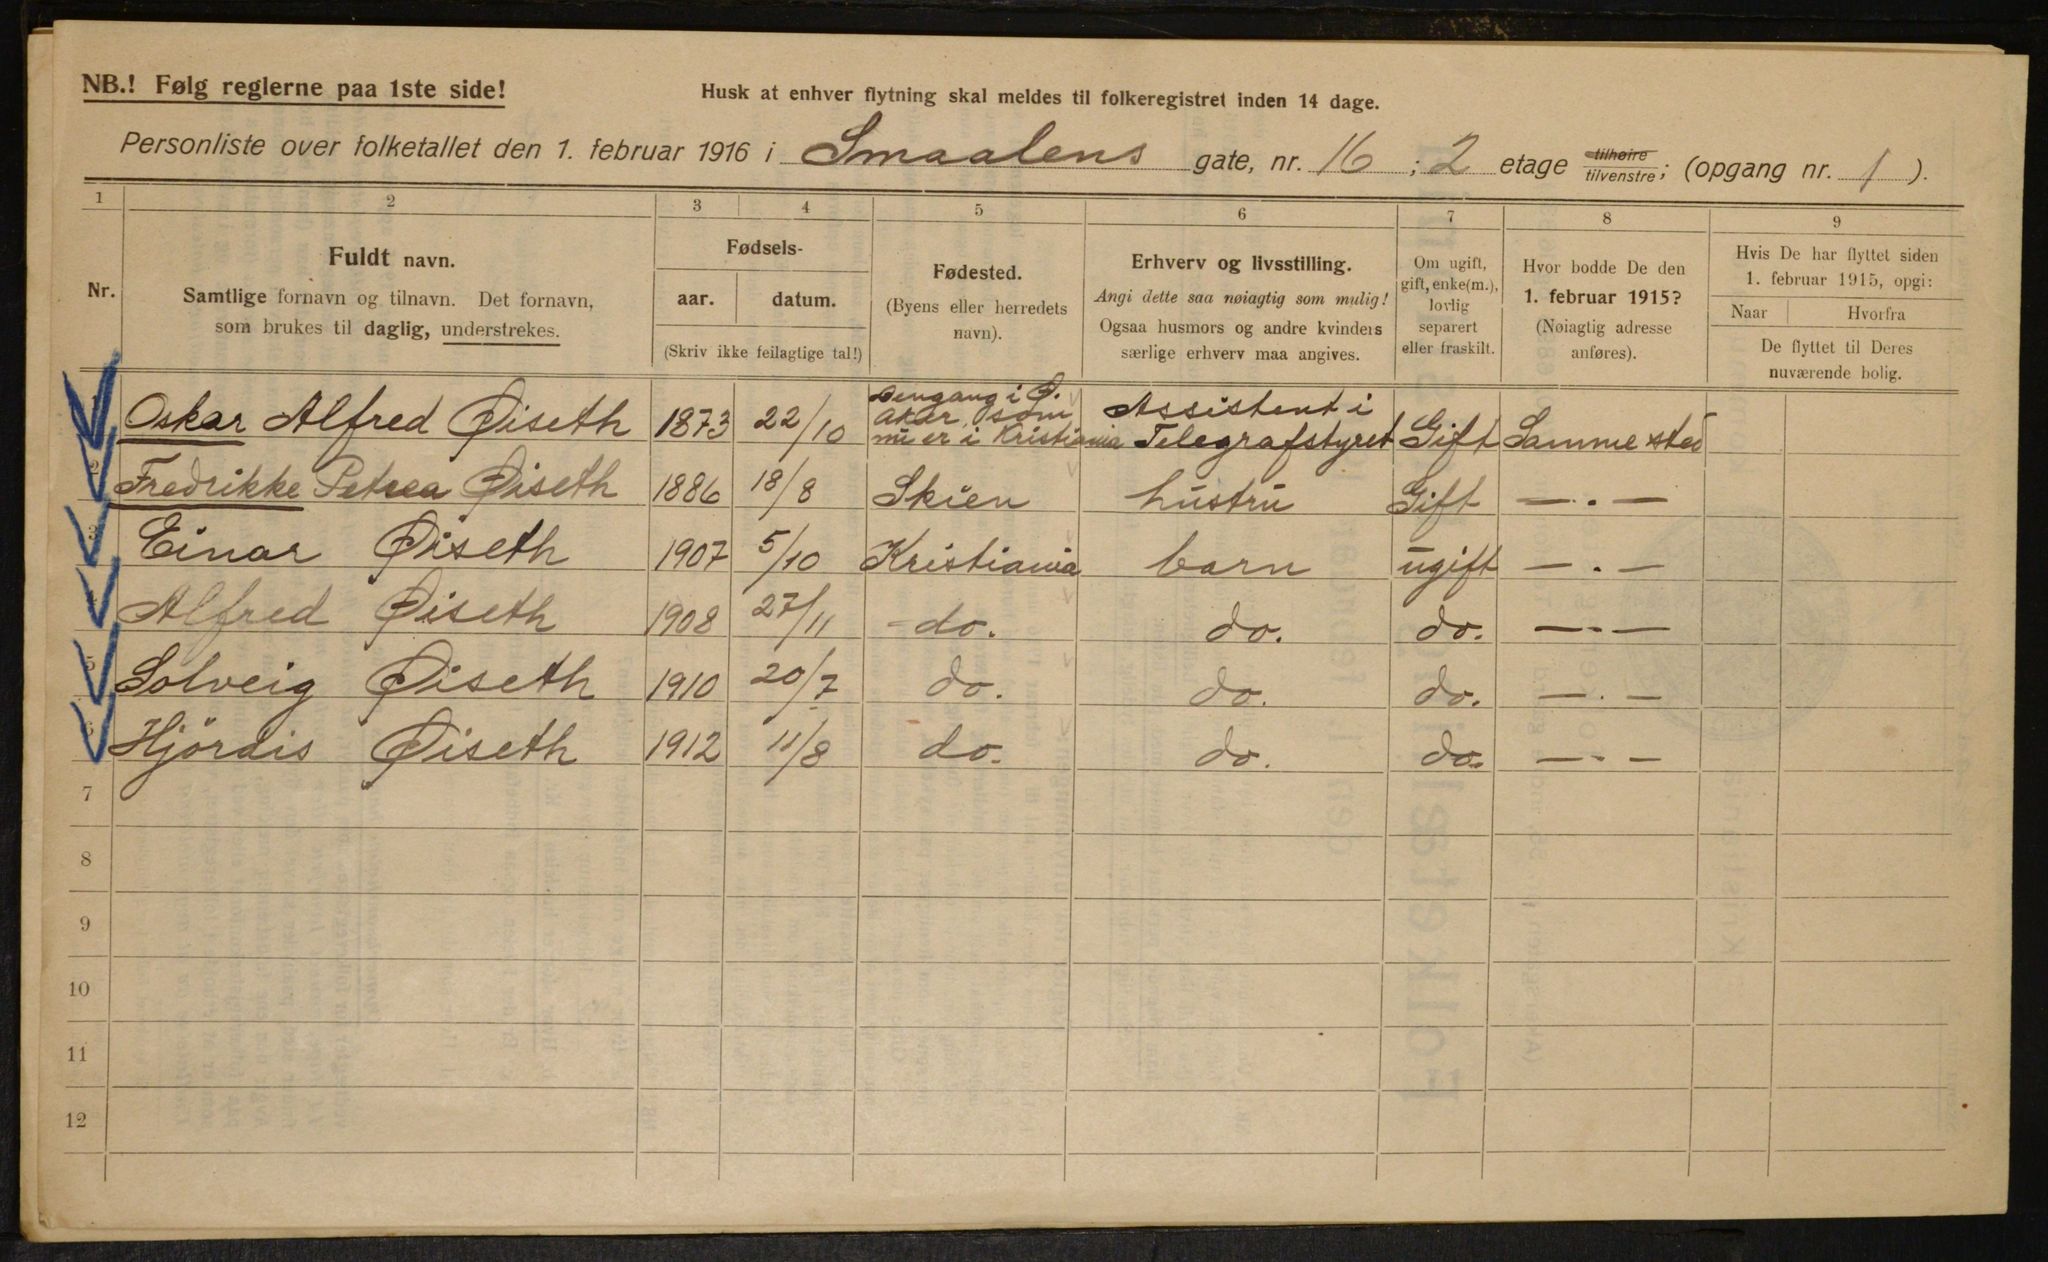 NB.! Følg reglerne paa 1ste side!
Husk at enhver flytning skal meldes til folkeregistret inden 14 dage.
Personliste over folketallet den 1. februar 1916 i Smaalens gate, nr. 16 ; 2 etage tilhøire tilvenstre; (opgang nr. 1 ).
1 2 3 4 5 6 7 8 9
Nr.
Fuldt navn.
Samtlige fornavn og tilnavn. Det fornavn,
som brukes til daglig, understrekes.
Fødsels-
aar. datum.
(Skriv ikke feilagtige tal!)
Fødested.
(Byens eller herredets
navn).
Erhverv og livsstilling.
Angi dette saa nøiagtig som mulig!
Ogsaa husmors og andre kvinders
særlige erhverv maa angives.
Om ugift,
gift, enke(m.),
lovlig
separert
eller fraskilt.
Hvor bodde De den
1. februar 1915?
(Nøiagtig adresse
anføres).
Hvis De har flyttet siden
1. februar 1915, opgi:
Naar Hvorfra
De flyttet til Deres
nuværende bolig.
Oskar Alfred Øiseth 1873 22/10 dengang i Ø. Aker, som nu er i Kristiania Assistent i Telegrafstyret Gift Samme sted
2 Fredrikke Petrea Øiseth 1886 18/8 Skien hustru Gift — . —
3 Einar Øiseth 1907 5/10 Kristiania barn ugift — . —
Alfred Øiseth 1908 27/11 do. do. do. — . —
5 Solveig Øiseth 1910 20/7 do. do. do. — . —
6 Hjördis Øiseth 1912 11/8 do. do. do. — . —
7
8
9
10
11
12